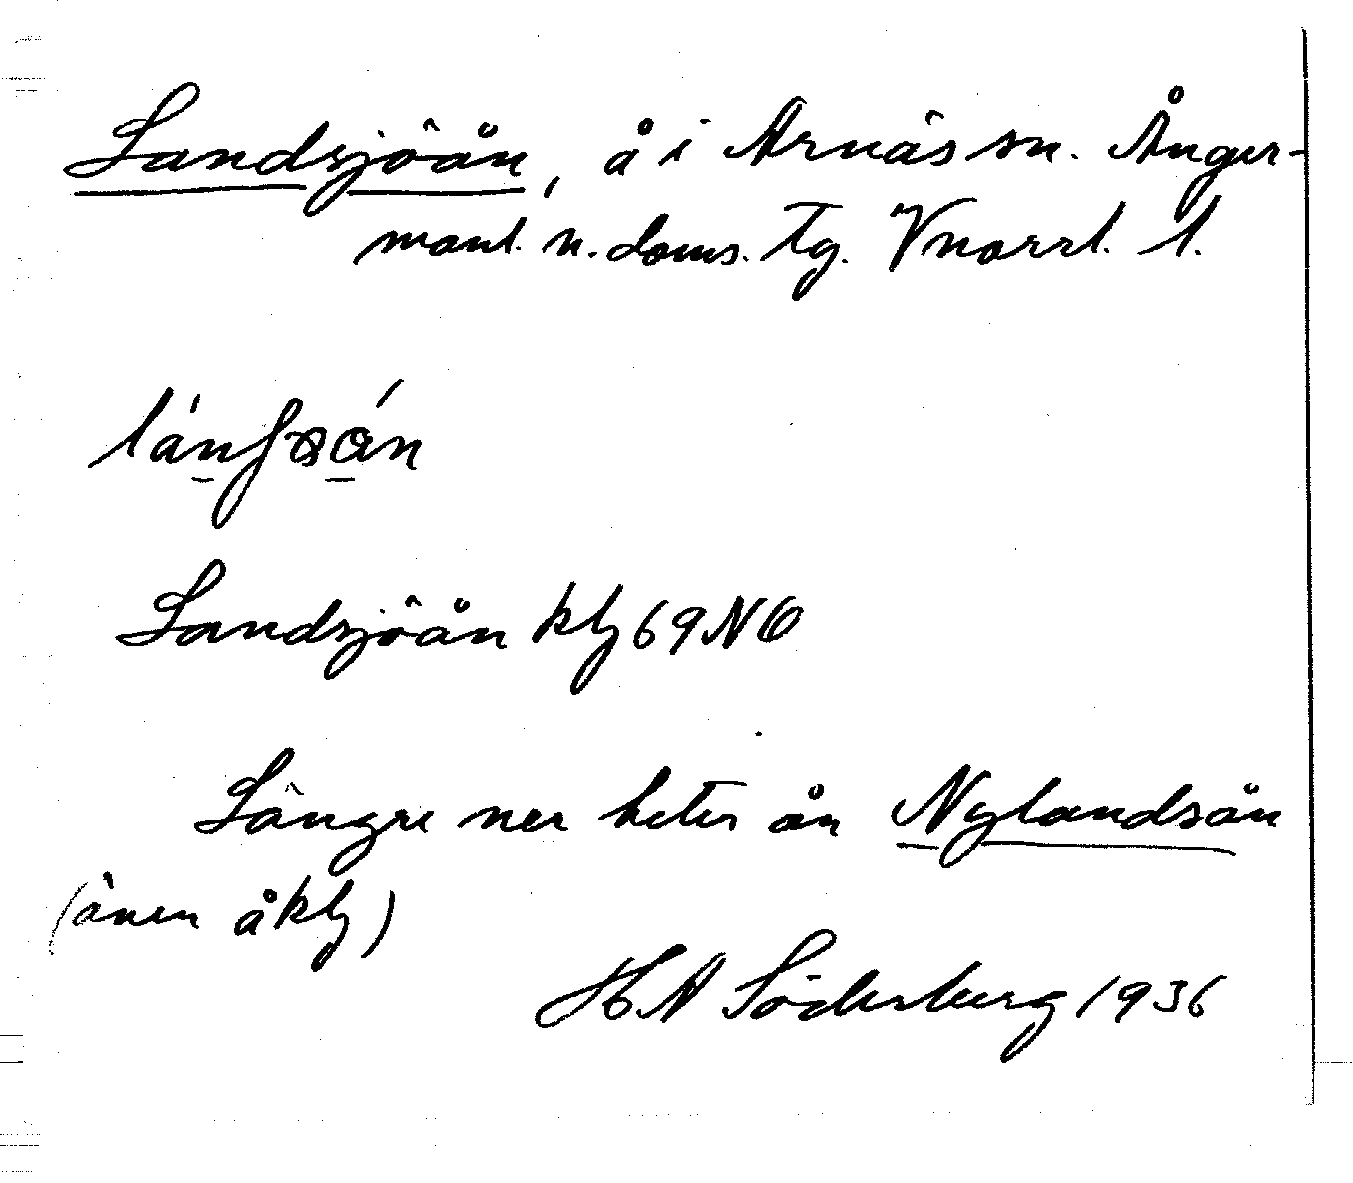 Landsjöån, å i Arnäs sn. Ånger-
manl. n. doms. Tg. Vnorrl. l.
Landsjöån kbl 69 NO
Längre ner heter ån Nylandsån
(även å kbl)
H A Söderberg 1936